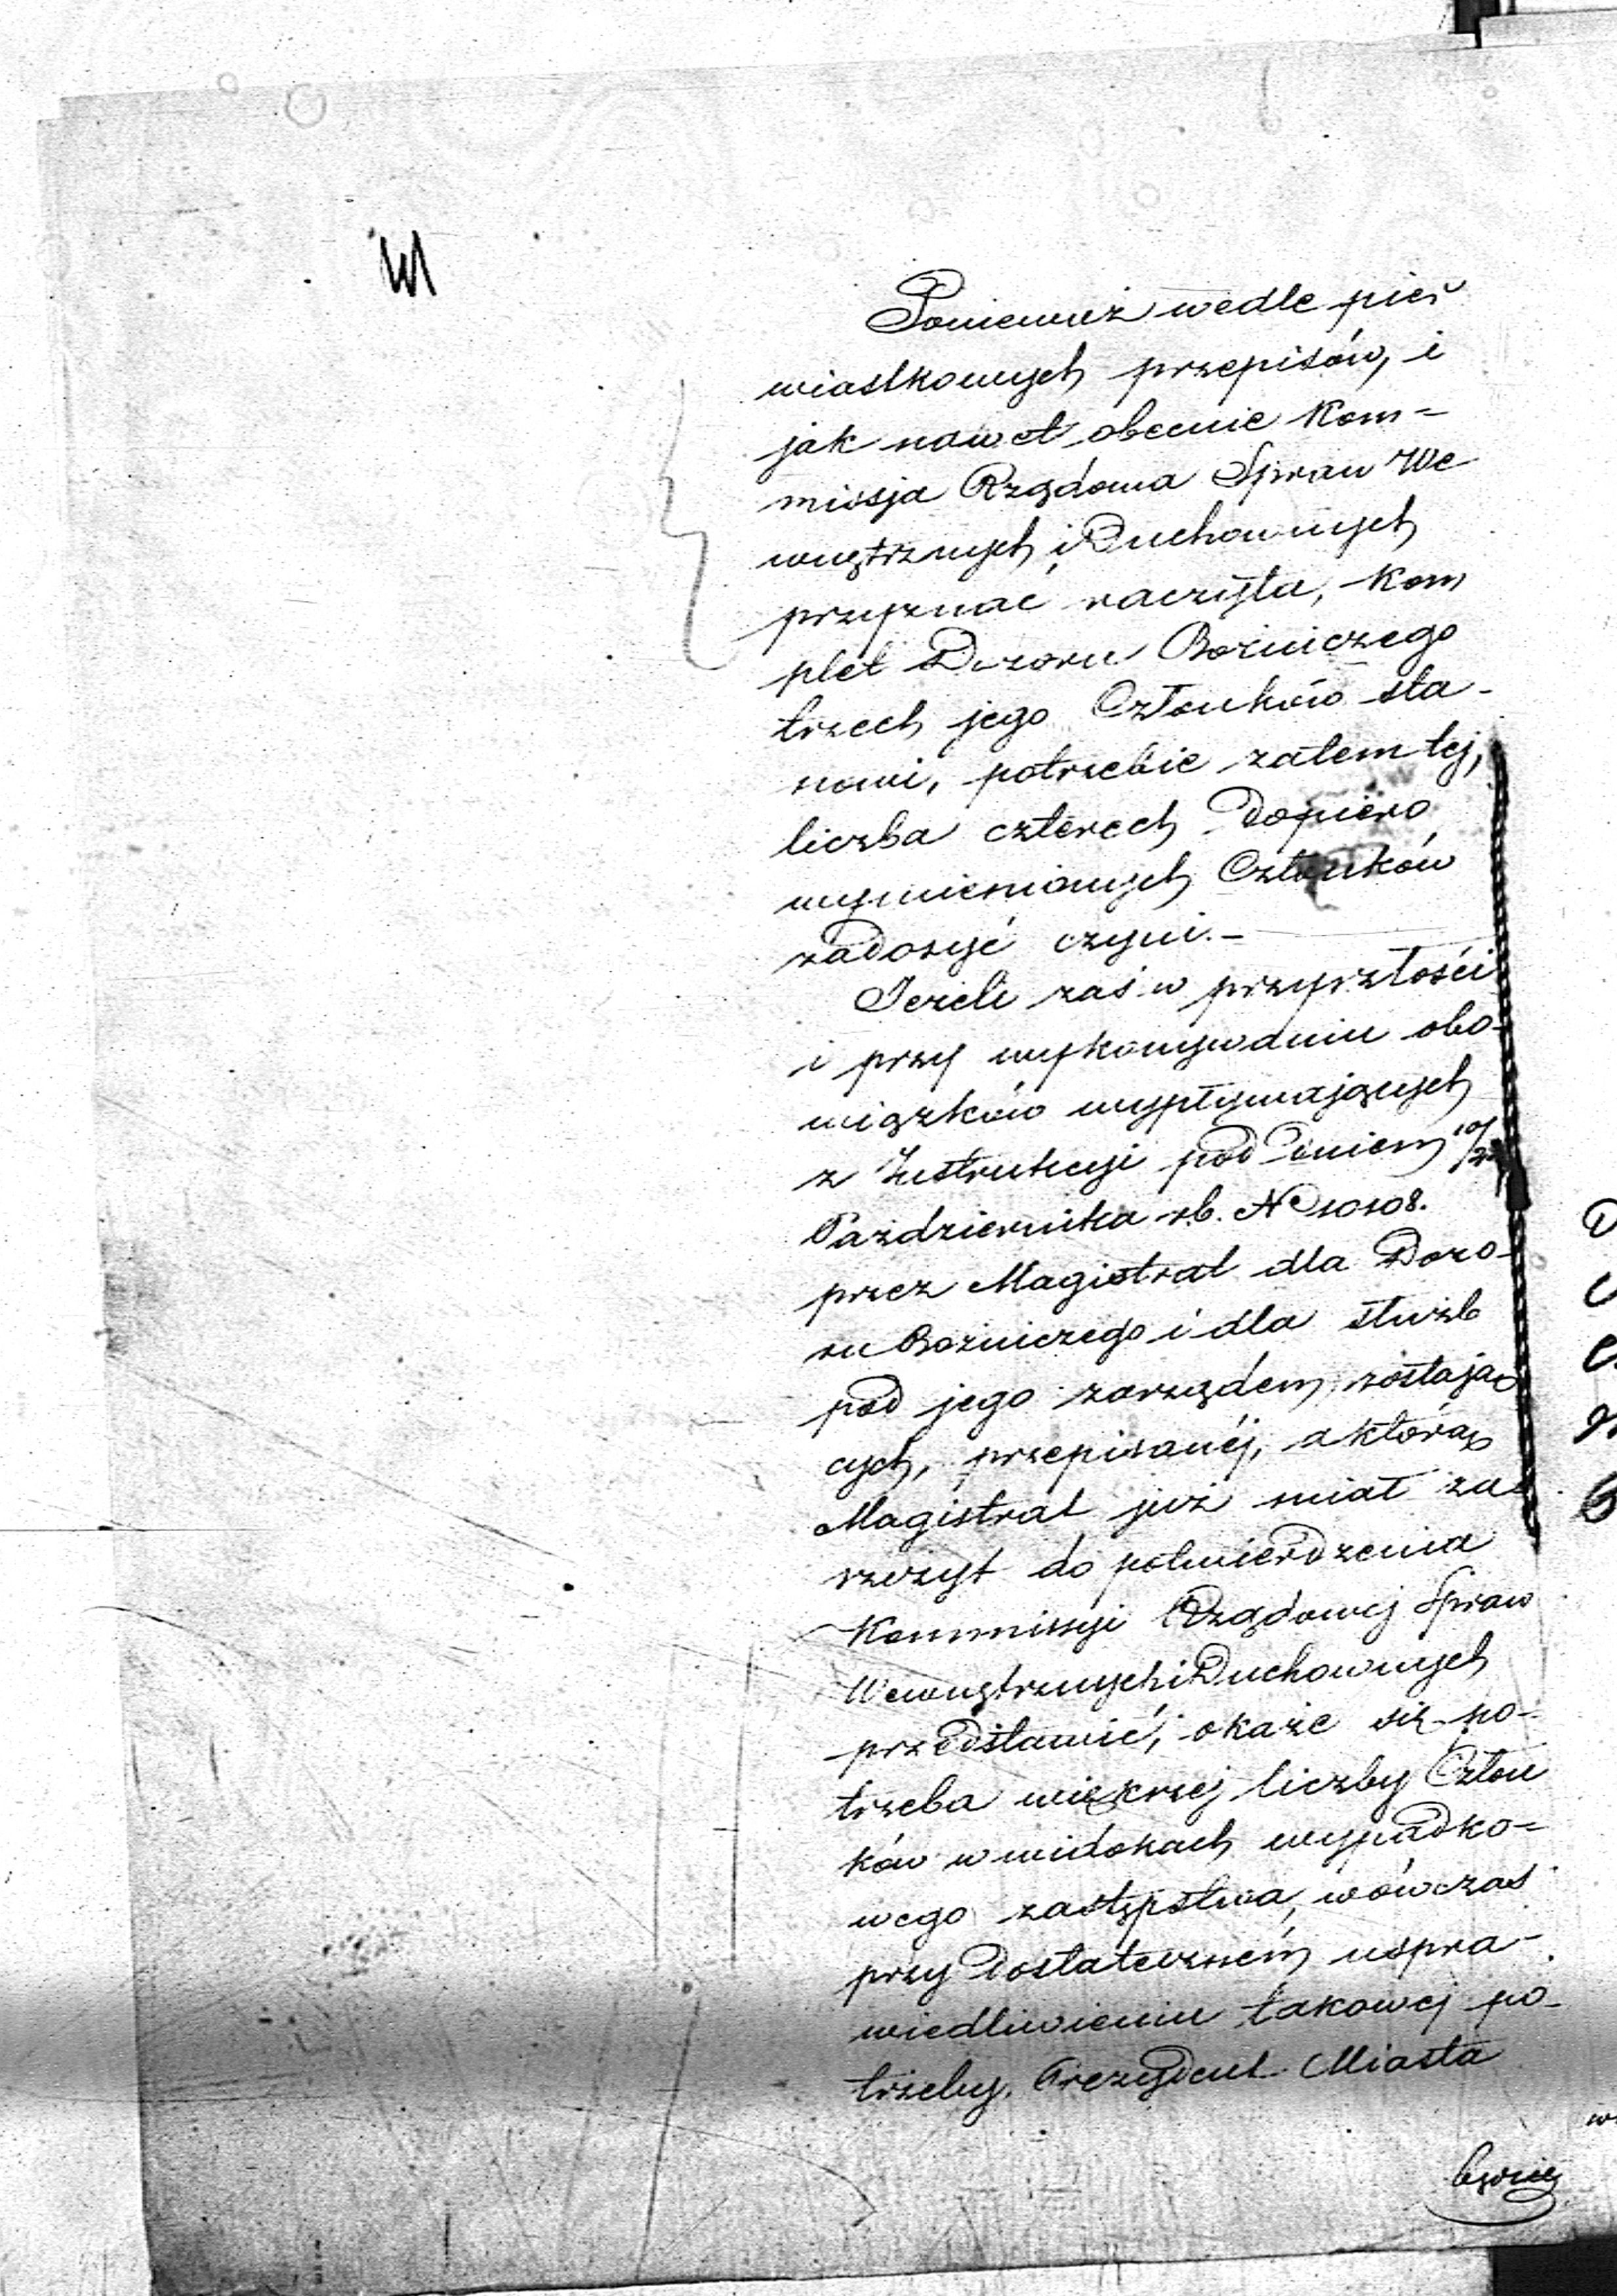 Ponieważ wedle pier
wiastkowych przepisów, i
jak nawet obecnie Kom=
missja Rządowa Spraw We
wnętrznych i Duchownych
przyznać raczyła, Kom
plet Dozoru Bożniczego
trzech jego Członków sta-
nowi, potrzebie zatem tej,
liczba czterech dopiero
wymienionych Członków
zadosyć czyni.-
Jeżeli zaś w przyszłości
i przy wykonywaniu obo-
wiązków wypływających
z Instrukcyi pod dniem 10/22
Października r.b. No 10108.
przez Magistrat dla Dozo-
ru Bożniczego i dla służb
pod jego zarządem zostają
cych, przepisanéj, a którą
Magistrat już miał za
szczyt do potwierdzenia
Kommissyi Rządowej Spraw
Wewnętrznych i Duchownych
przedstawić, okaże się po-
trzeba większej liczby Człon
ków w widokach wypadko=
wego zastępstwa, wówczas
przy dostateczném uspra-
wiedliwieniu takowej po-
trzeby, Prezydent Miasta